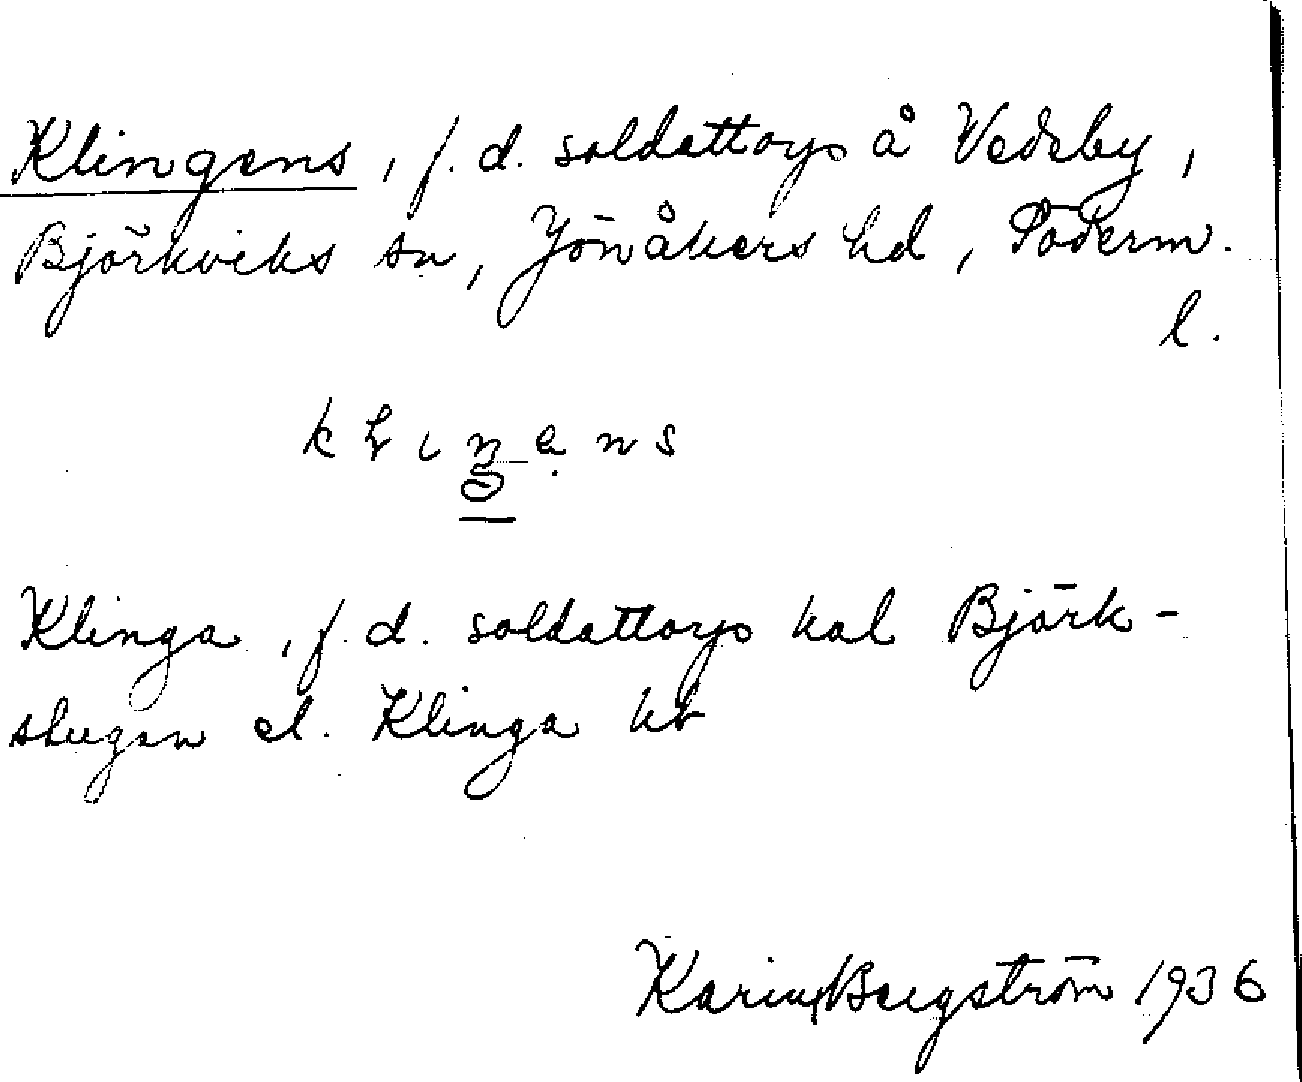 Klingens, f.d. soldattorp å Vedeby,
Björkviks sn, Jönåkers hd, Söderm.
l.
Klinga, f.d. soldattorp kal Björk-
stugan el. Klinga kb
Karin Bergström 1936